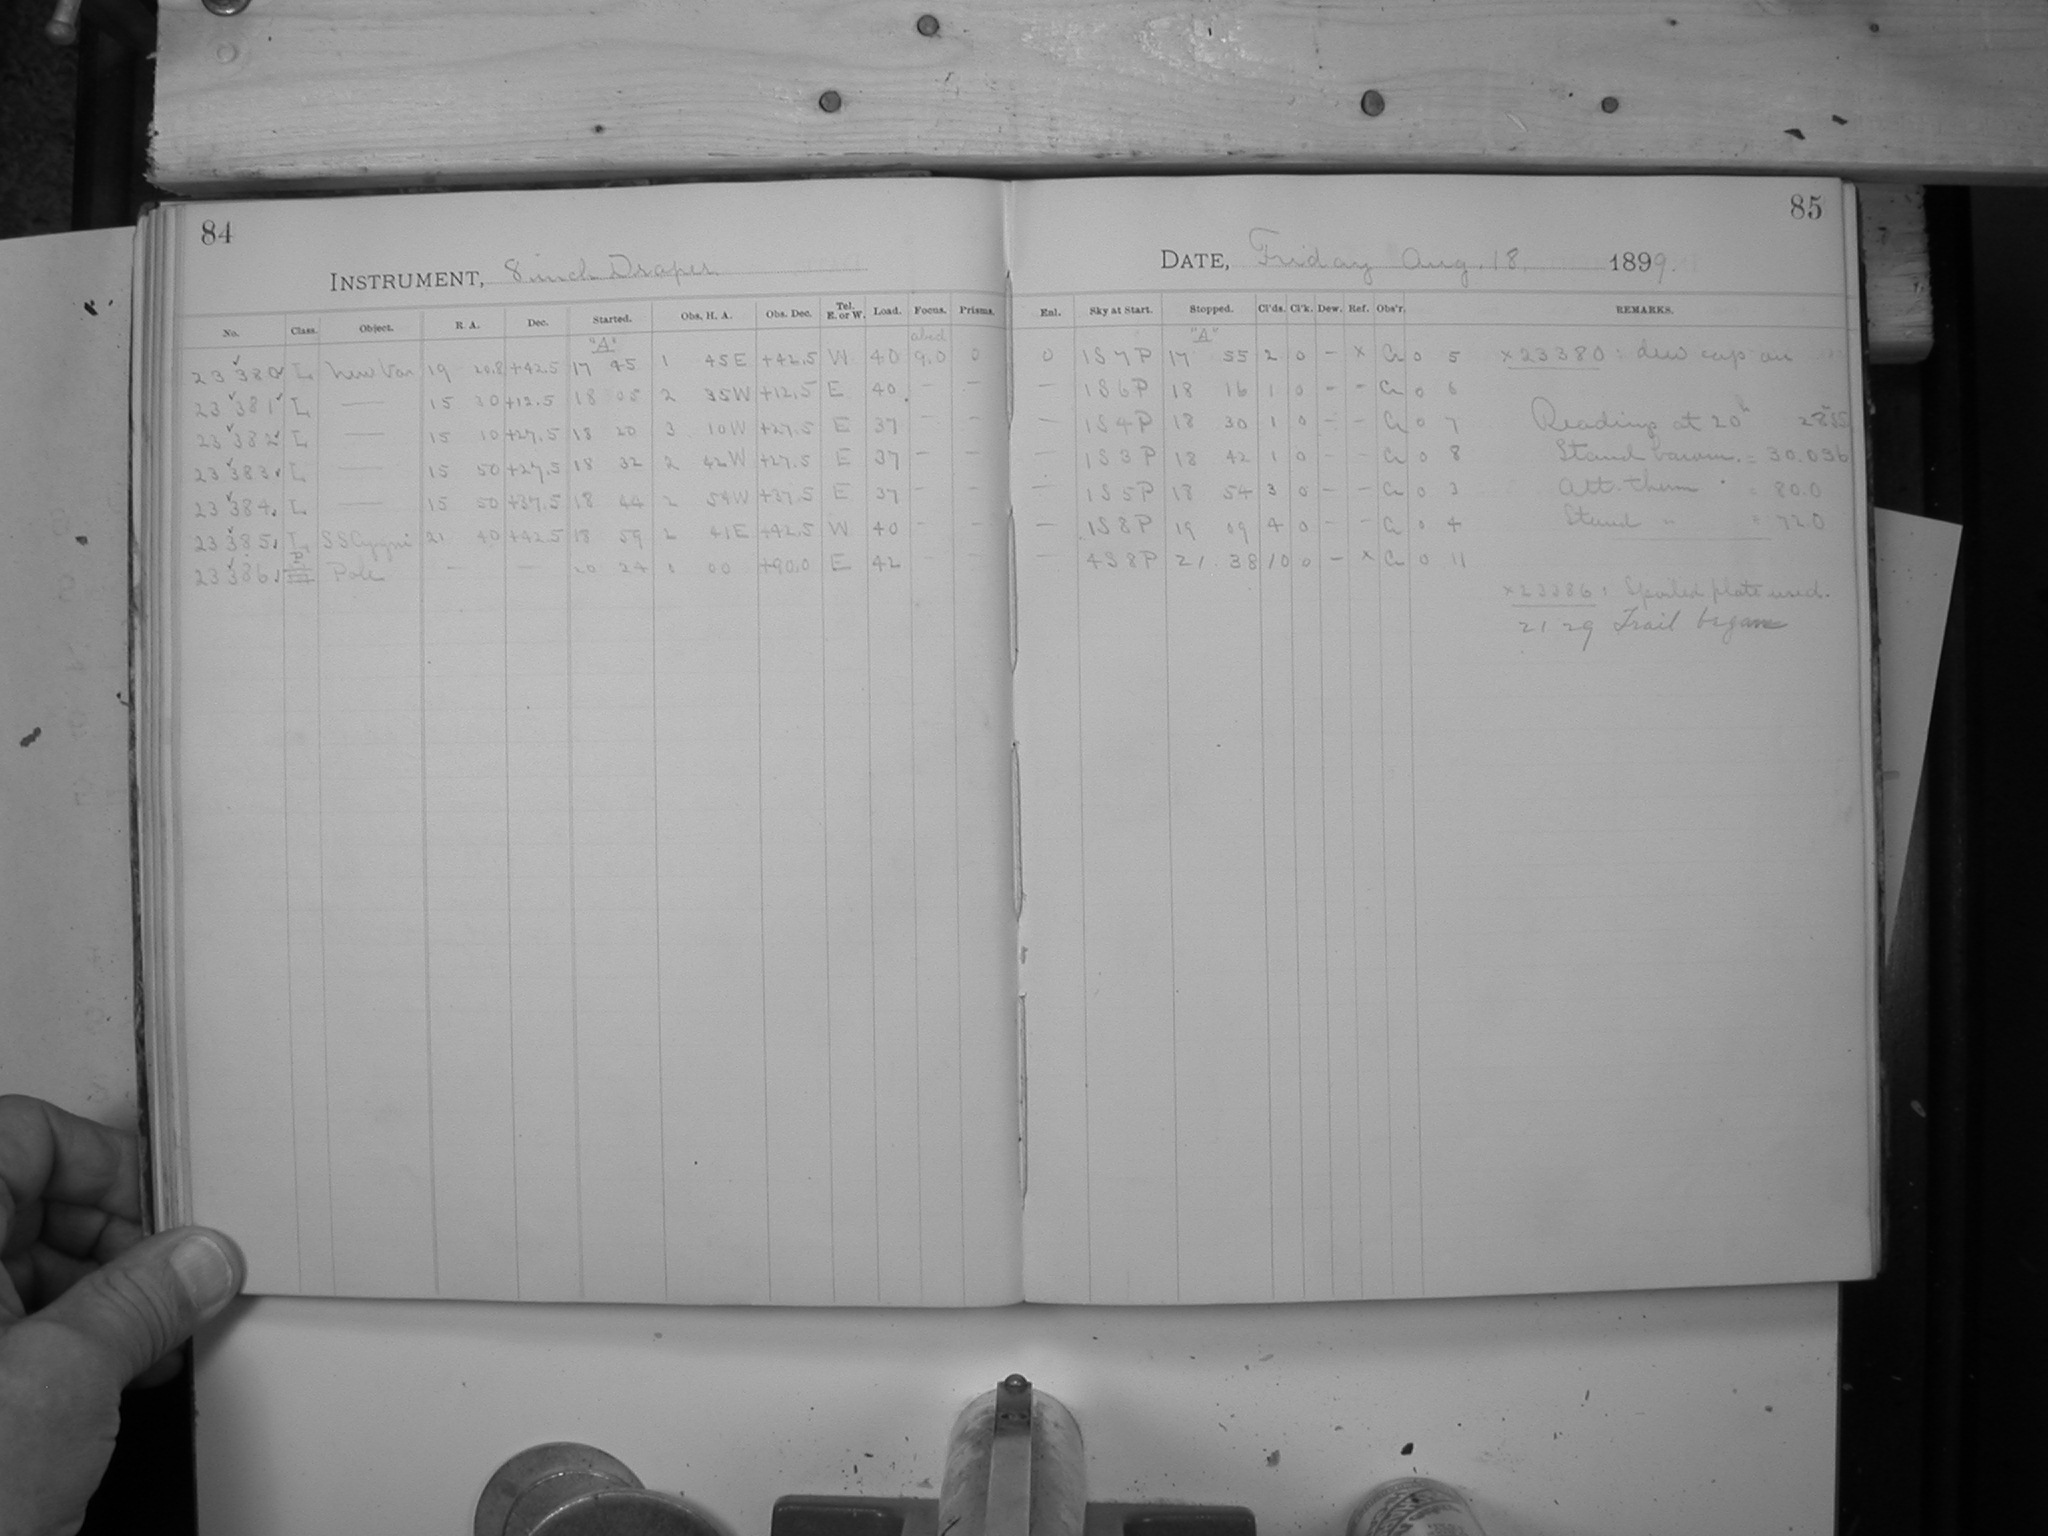 84
INSTRUMENT, 8 inch Draper
No. Class. Object. R. A. Dec. Started. Obs. H. A. Obs. Dec. Tel. E. or W. Load. Focus. Prisms.
"A"
23 380 L New Var 19 20.8 +42.5 17 45 1 45E +42.5 W 40 9.0 0
23 381 L — 15 30 +12.5 18 05 2 35W +12.5 E 40 — —
23 382 L — 15 10 +27.5 18 20 3 10W +27.5 E 37 — —
23 383 L — 15 50 +27.5 18 32 2 42W +27.5 E 37 — —
23 384 L — 15 50 +37.5 18 44 2 54W +37.5 E 37 — —
23 385 L SS Cygni 21 40 +42.5 18 59 2 41E +42.5 W 40 — —
P
23 386 Pole — — 20 24 1 00 +90.0 E 42 — —
85
DATE, Friday Aug. 18 1899.
Enl. Sky at Start. Stopped. Cl'ds. Cl'k. Dew. Ref. Obs'r. REMARKS.
"A"
0 1S7P 17 55 2 0 – x Cr 0 5 x23380 : dew cap on
— 1S6P 18 16 1 0 – – Cr 0 6
— 1S4P 18 30 1 0 – – Cr 0 7 Readings at 20h
— 1S3P 18 42 1 0 – – Cr 0 8 Stand barom. = 30.036
— 1S5P 18 54 3 0 – – Cr 0 3 Att. therm = 80.0
— 1S8P 19 09 4 0 – – Cr 0 4 Stand " = 72.0
— 4S8P 21 38 10 0 – x Cr 0 11
x23386 : Spoiled plate used.
21 29 Trail began